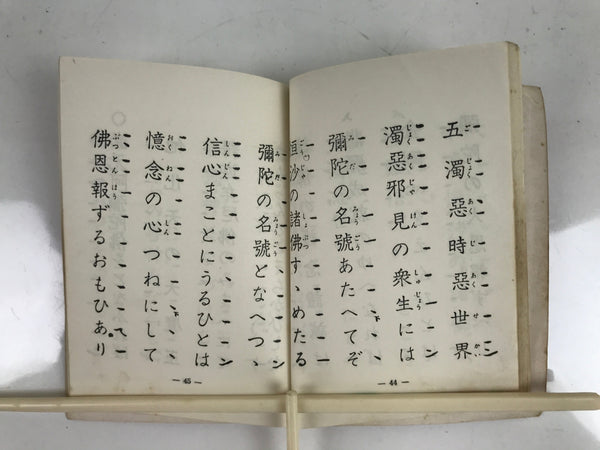 五濁惡時惡世界
濁惡邪見の衆生には
彌陀の名號あたへてぞ
恒沙の諸佛すゝめたる
— 44 —
彌陀の名號となへつゝ
信心まことにうるひとは
憶念の心つねにして
佛恩報ずるおもひあり
— 45 —